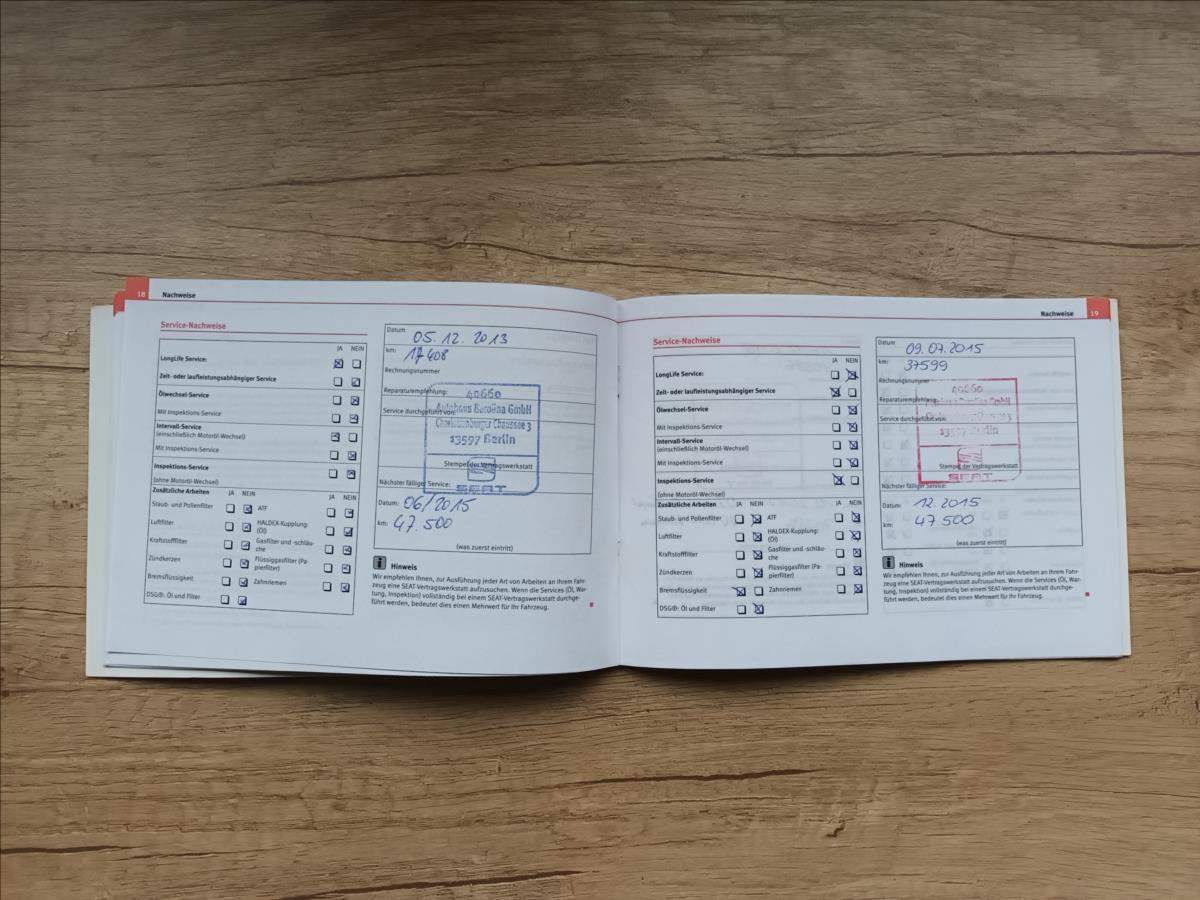 18 Nachweise
Service-Nachweise
JA NEIN
LongLife Service:
Zeit- oder laufleistungsabhängiger Service
Ölwechsel-Service
Mit Inspektions-Service
Intervall-Service
(einschließlich Motoröl-Wechsel)
Mit Inspektions-Service
Inspektions-Service
(ohne Motoröl-Wechsel)
Zusätzliche Arbeiten JA NEIN JA NEIN
Staub- und Pollenfilter ATF
Luftfilter HALDEX-Kupplung:
(Öl)
Kraftstofffilter Gasfilter und -schläu-
che
Zündkerzen Flüssiggasfilter (Pa-
pierfilter)
Bremsflüssigkeit Zahnriemen
DSG®: Öl und Filter
Datum 05.12.2013
km: 17408
Rechnungsnummer
Reparaturempfehlung:
40660
Autohaus Berolina GmbH
Service durchgeführt von:
Charlottenburger Chaussee 3
13597 Berlin
Stempel der Vertragswerkstatt
SEAT
Nächster fälliger Service:
Datum: 06/2015
km: 47.500
(was zuerst eintritt)
i Hinweis
Wir empfehlen Ihnen, zur Ausführung jeder Art von Arbeiten an Ihrem Fahr-
zeug eine SEAT-Vertragswerkstatt aufzusuchen. Wenn die Services (Öl, War-
tung, Inspektion) vollständig bei einem SEAT-Vertragswerkstatt durchge-
führt werden, bedeutet dies einen Mehrwert für Ihr Fahrzeug.
Nachweise 19
Service-Nachweise
JA NEIN
LongLife Service:
Zeit- oder laufleistungsabhängiger Service
Ölwechsel-Service
Mit Inspektions-Service
Intervall-Service
(einschließlich Motoröl-Wechsel)
Mit Inspektions-Service
Inspektions-Service
(ohne Motoröl-Wechsel)
Zusätzliche Arbeiten JA NEIN JA NEIN
Staub- und Pollenfilter ATF
Luftfilter HALDEX-Kupplung:
(Öl)
Kraftstofffilter Gasfilter und -schläu-
che
Zündkerzen Flüssiggasfilter (Pa-
pierfilter)
Bremsflüssigkeit Zahnriemen
DSG®: Öl und Filter
Datum: 09.07.2015
km: 37599
Rechnungsnummer
40660
Reparaturempfehlung:
Autohaus Berolina GmbH
Service durchgeführt von:
13597 Berlin
Stempel der Vertragswerkstatt
SEAT
Nächster fälliger Service:
Datum: 12.2015
km: 47500
(was zuerst eintritt)
i Hinweis
Wir empfehlen Ihnen, zur Ausführung jeder Art von Arbeiten an Ihrem Fahr-
zeug eine SEAT-Vertragswerkstatt aufzusuchen. Wenn die Services (Öl, War-
tung, Inspektion) vollständig bei einem SEAT-Vertragswerkstatt durchge-
führt werden, bedeutet dies einen Mehrwert für Ihr Fahrzeug.